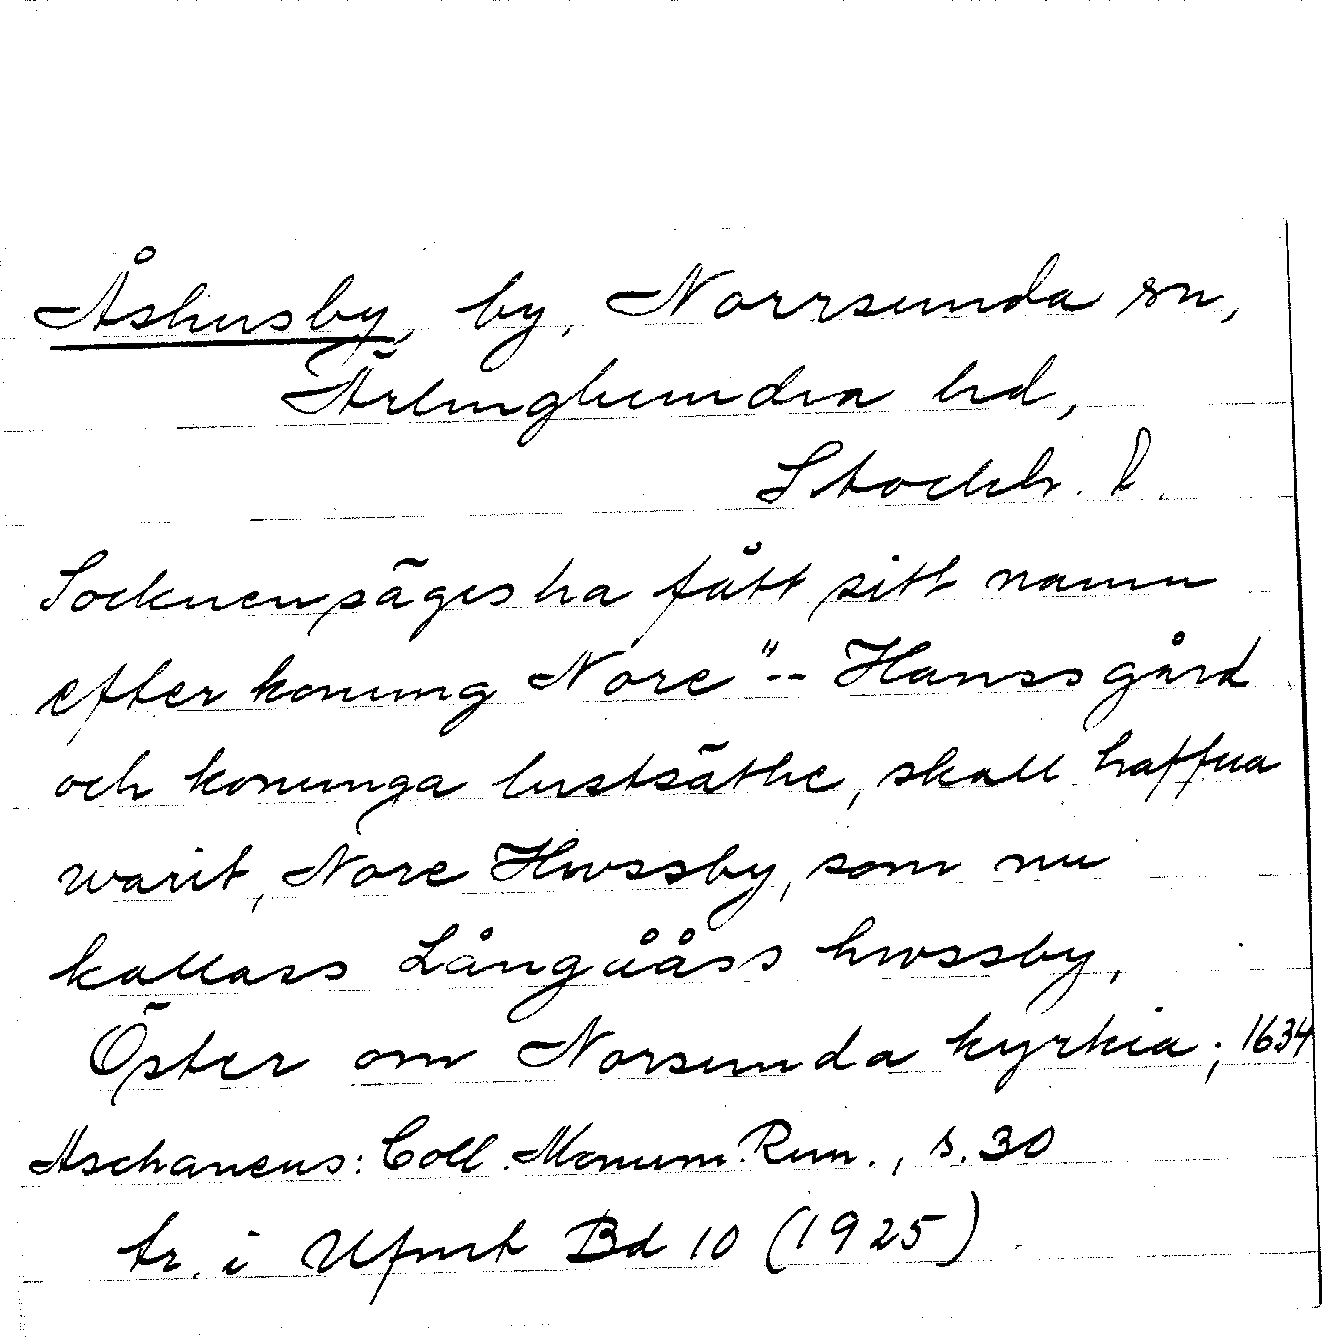 Åshusby, by, Norrsunda sn,
Ärlinghundra hd,
Stockh. l.
Socknen säges ha fått sitt namn
efter konung Nore "-- Hanss gård
och konunga lustsäthe, skall haffua
warit, Nore Hwssby, som nu
kallass Långåååss hwssby,
Öster om Norsunda kyrkia; 1634
Aschaneus: Coll. Monum. Run., s. 30
tr. i Ufmt Bd 10 (1925)